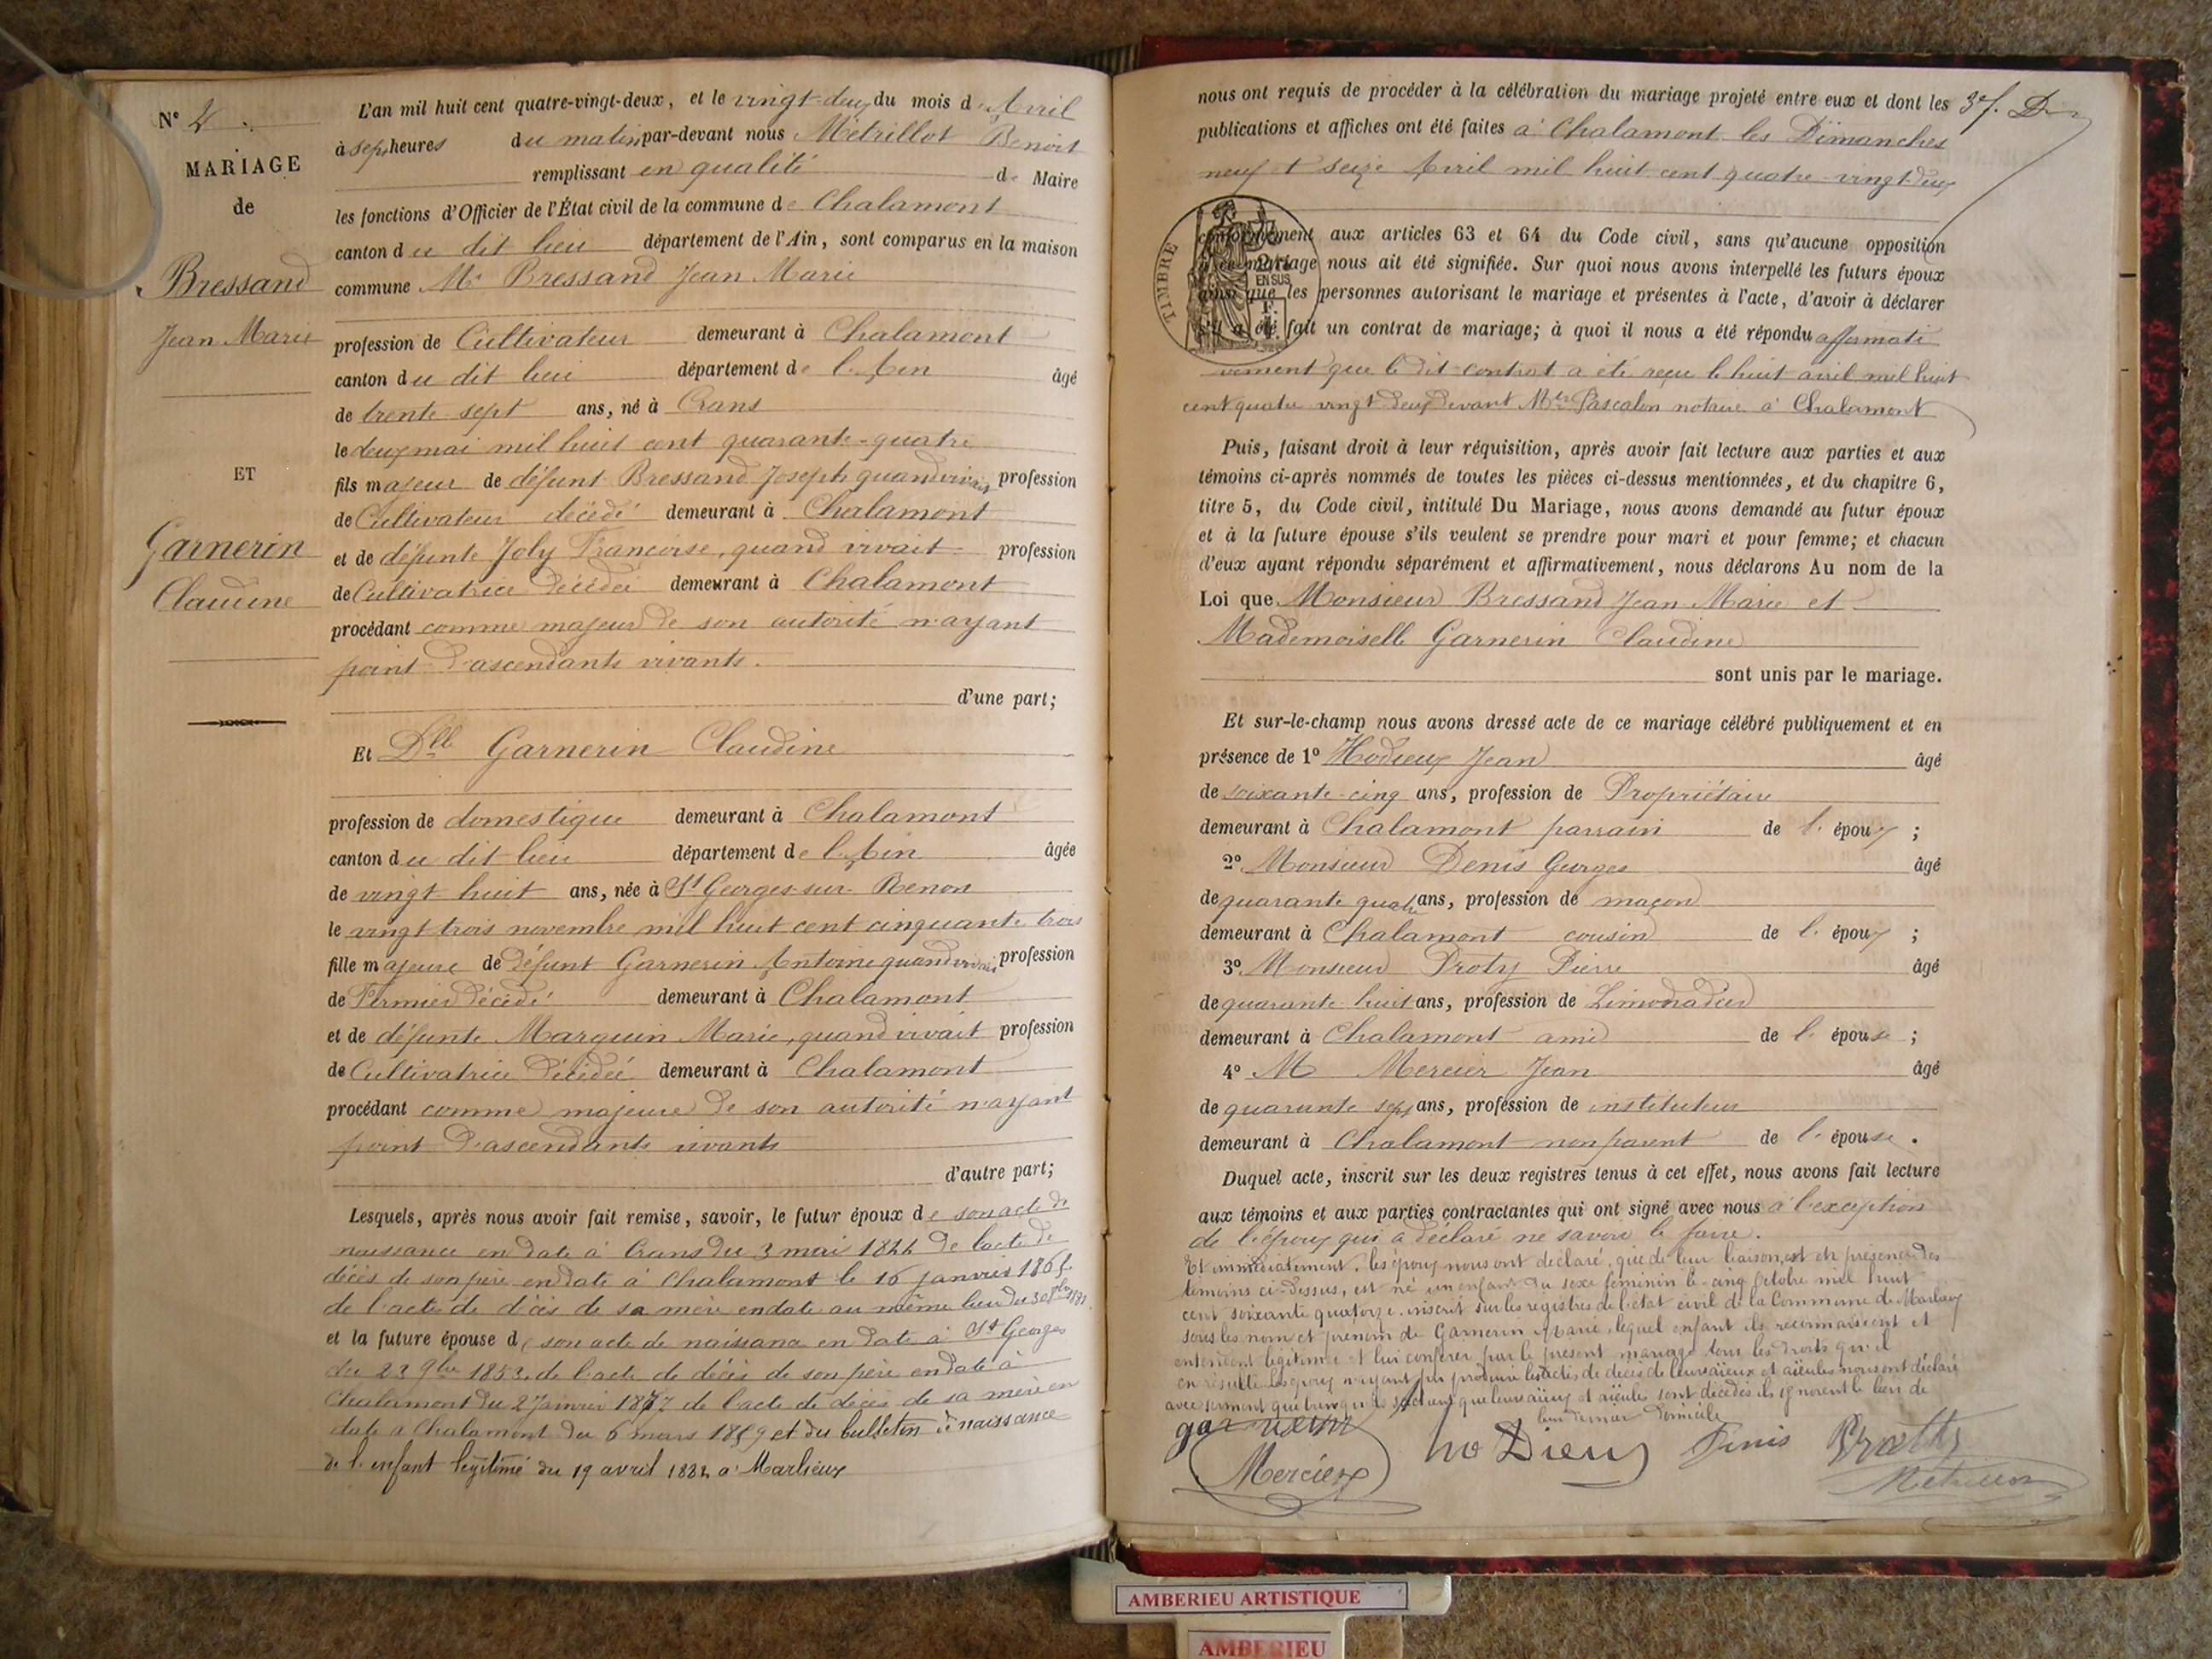 N° 4
MARIAGE
de
Bressand
Jean Marie
ET
Garnerin
Claudine
L'an mil huit cent quatre-vingt-deux, et le vingt-deux du mois d'Avril
à sept heures du matin par-devant nous Métrillot Benoit
remplissant en qualité de Maire
les fonctions d'Officier de l'État civil de la commune de Chalamont
canton du dit lieu département de l'Ain, sont comparus en la maison
commune Mr Bressand Jean Marie
profession de Cultivateur demeurant à Chalamont
canton du dit lieu département de l'Ain âgé
de trente sept ans, né à Crans
le deux mai mil huit cent quarante-quatre
fils majeur de défunt Bressand Joseph quand vivait profession
de Cultivateur décédé demeurant à Chalamont
et de défunte Joly Francoise, quand vivait profession
de Cultivatrice décédée demeurant à Chalamont
procédant comme majeur de son autorité n'ayant
point d'ascendants vivants.
d'une part;
Et Dlle Garnerin Claudine
profession de domestique demeurant à Chalamont
canton du dit lieu département de l'Ain âgée
de vingt huit ans, née à St Georges-sur-Renon
le vingt trois novembre mil huit cent cinquante trois
fille majeure de défunt Garnerin Antoine quand vivait profession
de Fermier décédé demeurant à Chalamont
et de défunte Marguin Marie, quand vivait profession
de Cultivatrice décédée demeurant à Chalamont
procédant comme majeure de son autorité n'ayant
point d'ascendants vivants
d'autre part;
Lesquels, après nous avoir fait remise, savoir, le futur époux de son acte de
naissance en date à Crans du 3 mai 1844 de l'acte de
décès de son père en date à Chalamont le 16 janvier
de l'acte de décès de sa mère en date au même lieu du 30
et la future épouse de son acte de naissance en date à St Georges
du 23 9bre 1853, de l'acte de décès de son père en date à
Chalamont du 2 Janvier 1877 de l'acte de décès de sa mère en
date à Chalamont du 6 mars 1859 et du bulletin de naissance
de l'enfant légitimé du 19 avril 1882 à Marlieux
nous ont requis de procéder à la célébration du mariage projeté entre eux et dont les
publications et affiches ont été faites à Chalamont les Dimanches
neuf et seize Avril mil huit cent quatre-vingt-deux
TIMBRE
EN SUS
conformément aux articles 63 et 64 du Code civil, sans qu'aucune opposition
à ce mariage nous ait été signifiée. Sur quoi nous avons interpellé les futurs époux
ainsi que les personnes autorisant le mariage et présentes à l'acte, d'avoir à déclarer
s'il a été fait un contrat de mariage; à quoi il nous a été répondu affirmati
vement que le dit contrat a été reçu le huit avril mil huit
cent quatre vingt deux devant Mtre Pascalin notaire à Chalamont
Puis, faisant droit à leur réquisition, après avoir fait lecture aux parties et aux
témoins ci-après nommés de toutes les pièces ci-dessus mentionnées, et du chapitre 6,
titre 5, du Code civil, intitulé Du Mariage, nous avons demandé au futur époux
et à la future épouse s'ils veulent se prendre pour mari et pour femme; et chacun
d'eux ayant répondu séparément et affirmativement, nous déclarons Au nom de la
Loi que Monsieur Bressand Jean Marie et
Mademoiselle Garnerin Claudine
sont unis par le mariage.
Et sur-le-champ nous avons dressé acte de ce mariage célébré publiquement et en
présence de 1° Hodieux Jean âgé
de soixante-cinq ans, profession de Propriétaire
demeurant à Chalamont parrain de l'époux ;
2° Monsieur Denis Georges âgé
de quarante quatre ans, profession de maçon
demeurant à Chalamont cousin de l'époux ;
3° Monsieur Proty Pierre âgé
de quarante huit ans, profession de Limonadier
demeurant à Chalamont ami de l'épouse ;
4° M Mercier Jean âgé
de quarante sept ans, profession de instituteur
demeurant à Chalamont non parent de l'épouse.
Duquel acte, inscrit sur les deux registres tenus à cet effet, nous avons fait lecture
aux témoins et aux parties contractantes qui ont signé avec nous à l'exception
de l'époux qui a déclaré ne savoir le faire.
Et immédiatement, les époux nous ont déclaré, que de leur liaison, est en présence des
témoins ci-dessus, est né un enfant du sexe féminin le cinq Octobre mil huit
cent soixante quatorze, inscrit sur les registres de l'état civil de la Commune de Marlieux
sous les nom et prénom de Garnerin Marie, lequel enfant ils reconnaissent et
entendent légitimer et lui conférer par le présent mariage tous les droits qu'il
en résulte les époux n'ayant pu produire les actes de décès de leurs aïeux et aïeules nous ont déclaré
avec serment que bien que leurs aïeux et aïeules sont décédés ils ignorent le lieu de
leur dernier domicile
garnerin
hodieux Denis Protty
Mercier
Métrillot
AMBERIEU ARTISTIQUE
AMBERIEU